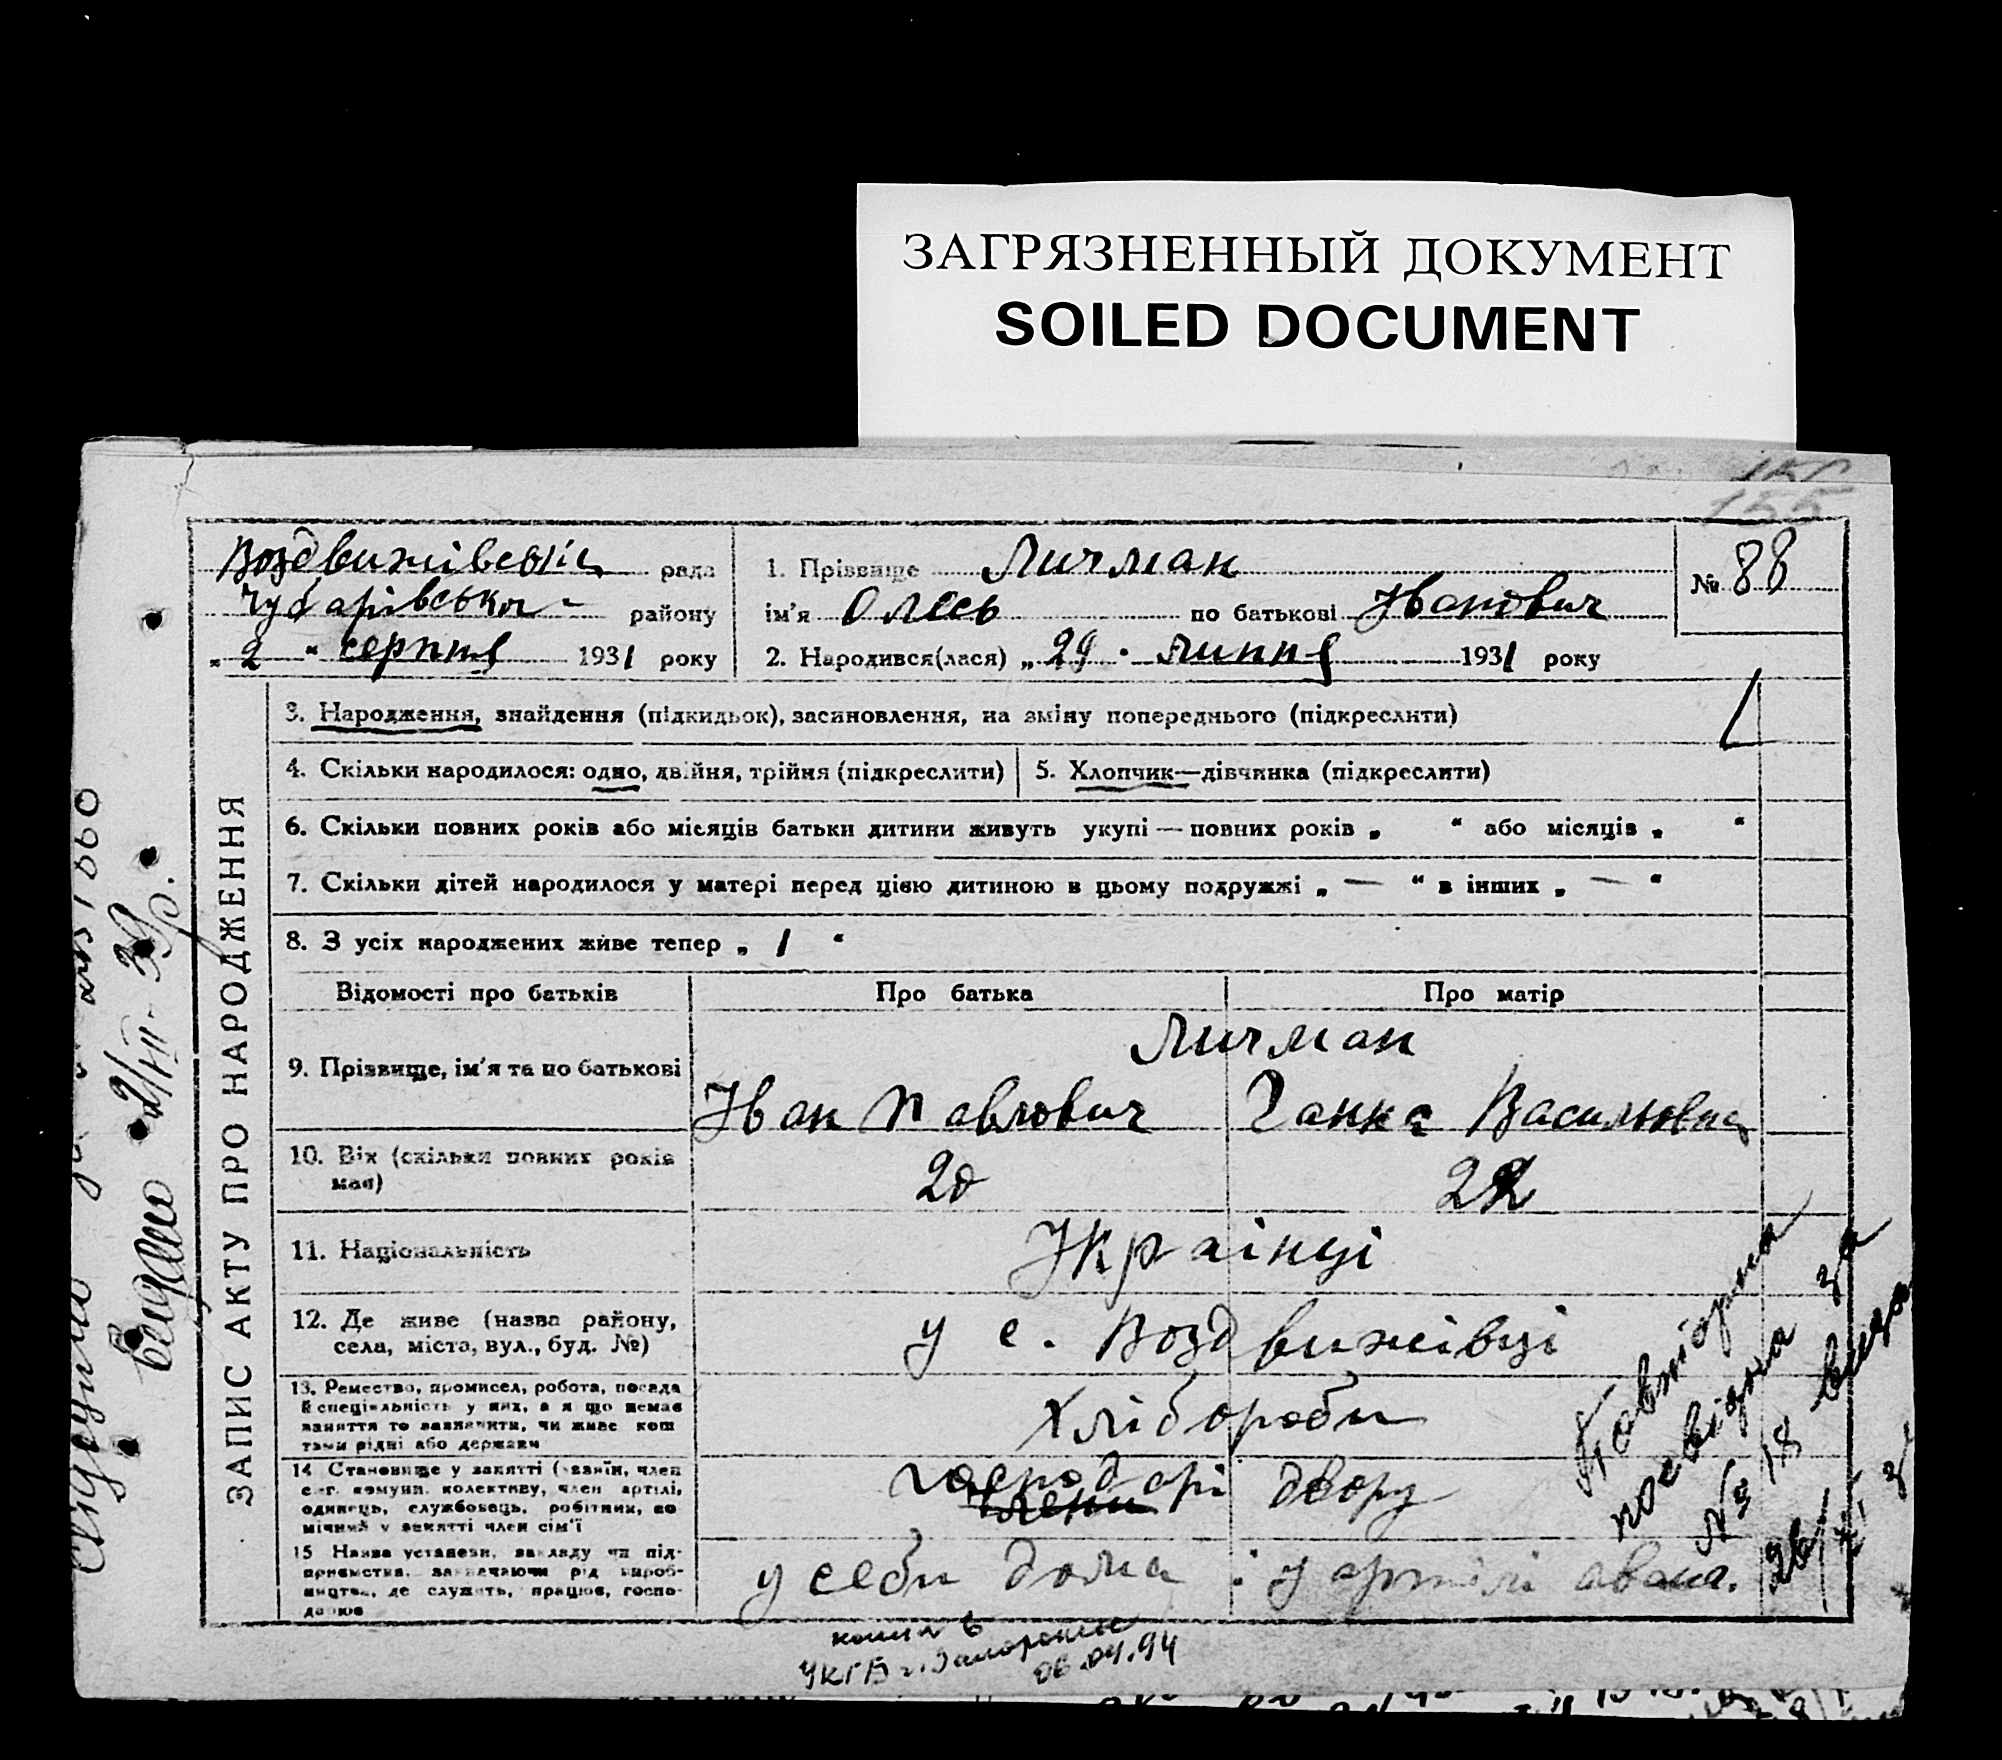 ЗАГРЯЗНЕННЫЙ ДОКУМЕНТ
SOILED DOCUMENT
155
Воздвижівська рада
Чубарівська району
„ 2 “ серпня 1931 року
1. Прізвище Личман
ім'я Олесь по батькові Іванович
2. Народився(лася) „ 29 . липня 1931 року
№ 88
ЗАПИС АКТУ ПРО НАРОДЖЕННЯ
3. Народження, знайдення (підкидьок), засиновлення, на зміну попереднього (підкреслити)
4. Скільки народилося: одно, двійня, трійня (підкреслити)
5. Хлопчик—дівчинка (підкреслити)
6. Скільки повних років або місяців батьки дитини живуть укупі — повних років „ “ або місяців „ “
7. Скільки дітей народилося у матері перед цією дитиною в цьому подружжі „ — “ в інших „ — “
8. З усіх народжених живе тепер „ 1 “
Відомості про батьків Про батька Про матір
9. Прізвище, ім'я та по батькові
Личман
Іван Павлович Ганна Василівна
10. Вік (скільки повних років має)
20 22
11. Національність
Українці
12. Де живе (назва району,
села, міста, вул., буд. №)
у с. Воздвижівці
13. Ремество, промисел, робота, посада
й спеціяльність у них, а я що немає
заняття то зазначити, чи живе кош
тами рідні або держави
Хлібороби
14 Становище у занятті (хазяїн, член
с.-г. комуни, колективу, член артілі,
одинець, службовець, робітник, по
мічний у занятті член сім'ї
господарі двору
члени
15 Назва установи, закладу чи під-
приємства, зазначаючи рід вироб-
ництва, де служить, працює, госпо-
дарює
у себи дома : у артілі
Повторна
посвідка за
№ 18 видана
26
копия в
УКГБ г. Запорожье
06.04.94